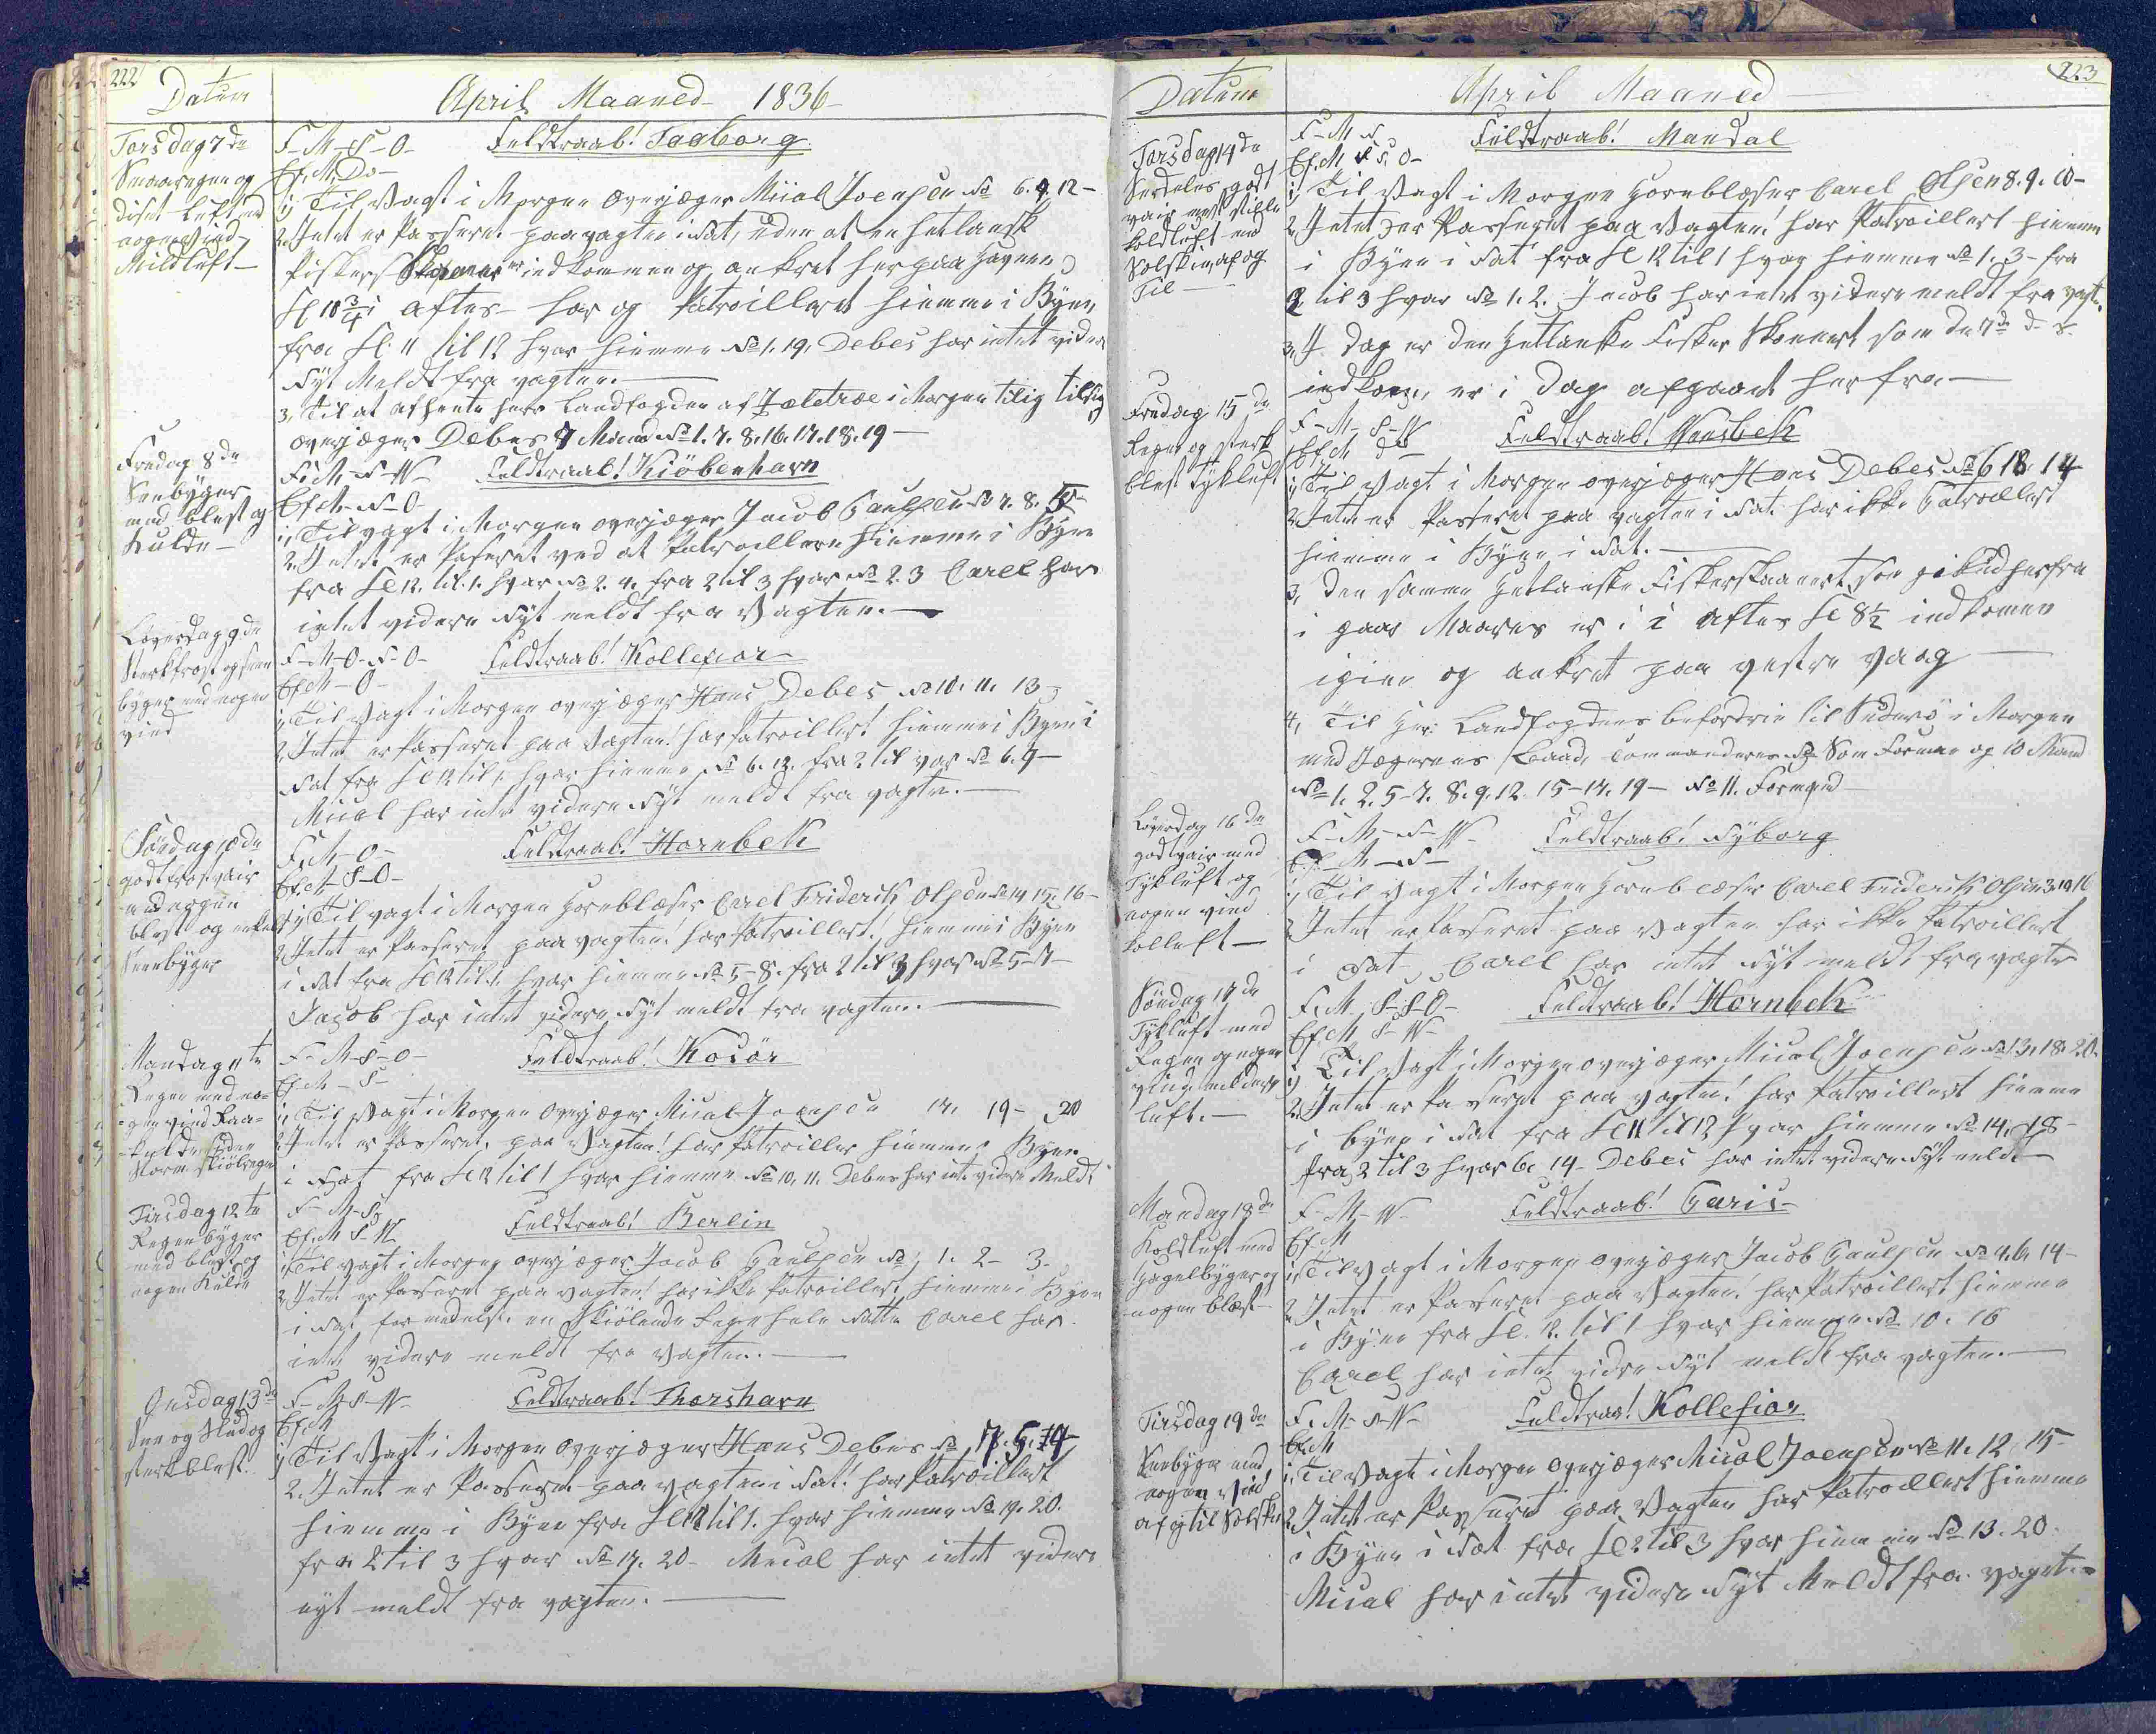 222
Datum
April Maaned 1836
Torsdag 7de
Smaaregn og
diset Luft med
nogen Vind
Mild luft
F-M-S-O- Feldtraab! Faaborg
Ef.M. Do
1, Til Vagt i Morgen Overjæger Miical Joensen No 6. 9. 12-
2, Intet er Passeret paa vagten i Nat, uden at en hetlansk
Fisker Skonnert er indkommen og ankret her paa Havnen
Kl 10 3/4 i aftes har og Patroillert hiemme i Byen
fra Kl. 11 til 12 hvor hiemme No 1. 19, Debes har intet videre
Nyt Meldt fra vagten.
3, Til at afhente herr Landfogden af i Morgen tilig
overjæger Debes 7 Mand No 1. 7. 8. 16. 17. 18. 19-
Fredag 8de
Sneebyger
med blest og
Kulde
F.M-N-W- Feldtraab! Kiöbenhavn
Ef.M-N-O-
1, Til vagt i Morgen overjæger Jacob Paulsen No 7. 8.
2, Intet er Paseret ved at Patroillere hiemme i Byen
fra Kl 12. til. 1. hvor No 2. 4. fra 2 til 3 hvor No 2. 3 Carel har
intet videre Nyt meldt fra Vagten.
Løverdag 9de
Sterk frost og snee
byger med nogen
vind
F-M-O-N-O- Feldtraab! Kollefior
Ef.M-O-
1, Til Vagt i Morgen overjæger Hans Debes No 10. 11. 13
2, Intet er Passeret paa Vagten! har Patroillert hiemme i Byen i
Nat fra Kl 12 til 1 hvor hiemme No 6. 12. fra 2 til var No 6. 9-
Miical har intet videre Nyt meldt fra vagten.
Söndag 10de
godt frostvair
med nogen
blest og enkelt
Sneebyger
F.M-O- Feldtraab! Hornbek
Ef.M-S-O-
1, Til vagt i Morgen Hornblæser Carel Friderik Olsen No 14 15. 16-
2, Intet er Passeret paa vagten! har Patroillert! hiemme i Byen
i Nat fra Kl 12 til 1. hvor hiemme No 5-8. fra 2 til 3 hvor No 5-7-
Jacob har intet videre Nyt meldt fra vagten.
Mandag 11te
Regen med no-
gen vind Raa-
F-M-S-O- Feldtraab! Kosör
Ef.M-S-
1, Til Vagt i Morgen Overjæger Miical Joensen 17. 19- 20
2, Intet er Passeret paa Vagten! har Patroiller hiemme i Byen
i Nat fra Kl 12 til 1 hvor hiemme No 10, 11. Debes har int videre Meldt
Tirsdag 12te
Regenbyger
med blest og
nogen Kulde
F-M-S Feldtraab! Berlin
Ef.M S-W
1, Til vagt i Morgen overjæger Jacob Paulsen No 1. 2- 3-
2, Intet er Passeret paa vagten! har ikke Patroillert hiemme i Byen
i Nat formedelst en Skiölende Regn hele Natten Carel har
intet videre meldt fra Vagten.
Onsdag 13de
Snee og Slud og
sterk blest
F-M-S-W- Feldtraab! Thorshavn
Ef.M
1, Til Vagt i Morgen Overjæger Hans Debes No
2, Intet er Passeret paa vagten i Nat! har Patroillert
hiemme i Byen fra Kl 12 til 1. hvor hiemme No 19. 20.
fra 2 til 3 hvor No 17. 20- Miical har intet videre
nyt meldt fra vagten.
223
Datum
April Maaned
Torsdag 14de
Særdeles godt
vair mest stille
kold luft med
Solskin af og
Til
F-M N Feldtraab! Mandal
Ef.M S O-
1, Til Vagt i Morgen Hornblæser Carel Olsen 8. 9. 10-
2, Intet er Passeret paa Vagten! har Patroillert hiemme
i Byen i Nat fra Kl 12 til 1 hvor hiemme No 1. 3- fra
2 til 3 hvor No 1. 2. Jacob har intet videre meldt fra vagten
3, I Dag er den Hetlanske Fisker Skonnert som de 7de d. s.
indkom, er i Dag afgaaet herfra
Fredag 15de
Regen og sterk
blest Tykluft
F-M-S-W Feldtraab! Wansbek
Ef.M do
1, Til Vagt i Morgen overjæger Hans Debes No 6 18. 14
2, Intet er Passeret paa vagten i Nat har ikke Patroillert
hiemme i Byen i Nat.
3, Den samme Hetlanske Fiskerskonnert som gik ud herfra
i gaar Mares er i i Aftes Kl 8 1/2 indkomen
igien og ankret paa vestre vaag
4, Til Her Landfogdens befordrin til Suderö i Morgen
med Jægernes Baad, Commanderes No Som Formand og 10 Mand
No 1. 2. 5-7. 8. 9. 12 15-17. 19- No 11. Formand
Löverdag 16de
godt vair med
Tykluft og
nogen vind
F-M-N-W- Feldtraab! Nyborg
Ef.M-N-
1, Til Vagt i Morgen Hornblæser Carel Friderik Olsen 3. 10 16
2, Intet er Passeret paa Vagten har ikke Patroillert
i Nat. Carel har intet Nyt meldt fra vagten
Söndag 17de
Tykluft med
Regen og nogen
vind mildere
luft.
F.M. S-S-O- Feldtraab! Hornbek
Ef.M S-W-
1, Til Vagt i Morgen overjæger Miical Joensen No 13. 18. 20.
2, Intet er Passeret paa vagten! har Patroillert hiemme
i byen i Nat fra Kl 11 til 12 hvor hiemme No 14. 18-
fra 2 til 3 hvor 6. 14- Debes har intet videre Nyt meldt
Mandag 18de
Koldluft med
Hagelbyger og
nogen blæst
F-M-W Feldtraab! Paris
Ef.M
1, Til Vagt i Morgen overjæger Jacob Paulsen No 4. 6. 14-
2, Intet er Passeret paa Vagten! har Patroillert hiemme
i Byen fra Kl. 12. til 1 hvor hiemme No 10. 16
Carel har intet vidre Nyt meldt fra vagten.
Tirsdag 19de
Sneebyger med
nogen Vind
af og til Solskin
F.M-N-W- Feldtraa! Kollefior
Ef.M
1, Til Vagt i Morgen Overjæger Miical Joensen No 11. 12. 15-
2, Intet er Passeret paa Vagten har Patroillert hiemme
i Byen i Nat fra Kl 2 til 3 hvor hiemme No 13. 20.
Miical har intet videre Nyt Meldt fra vagten